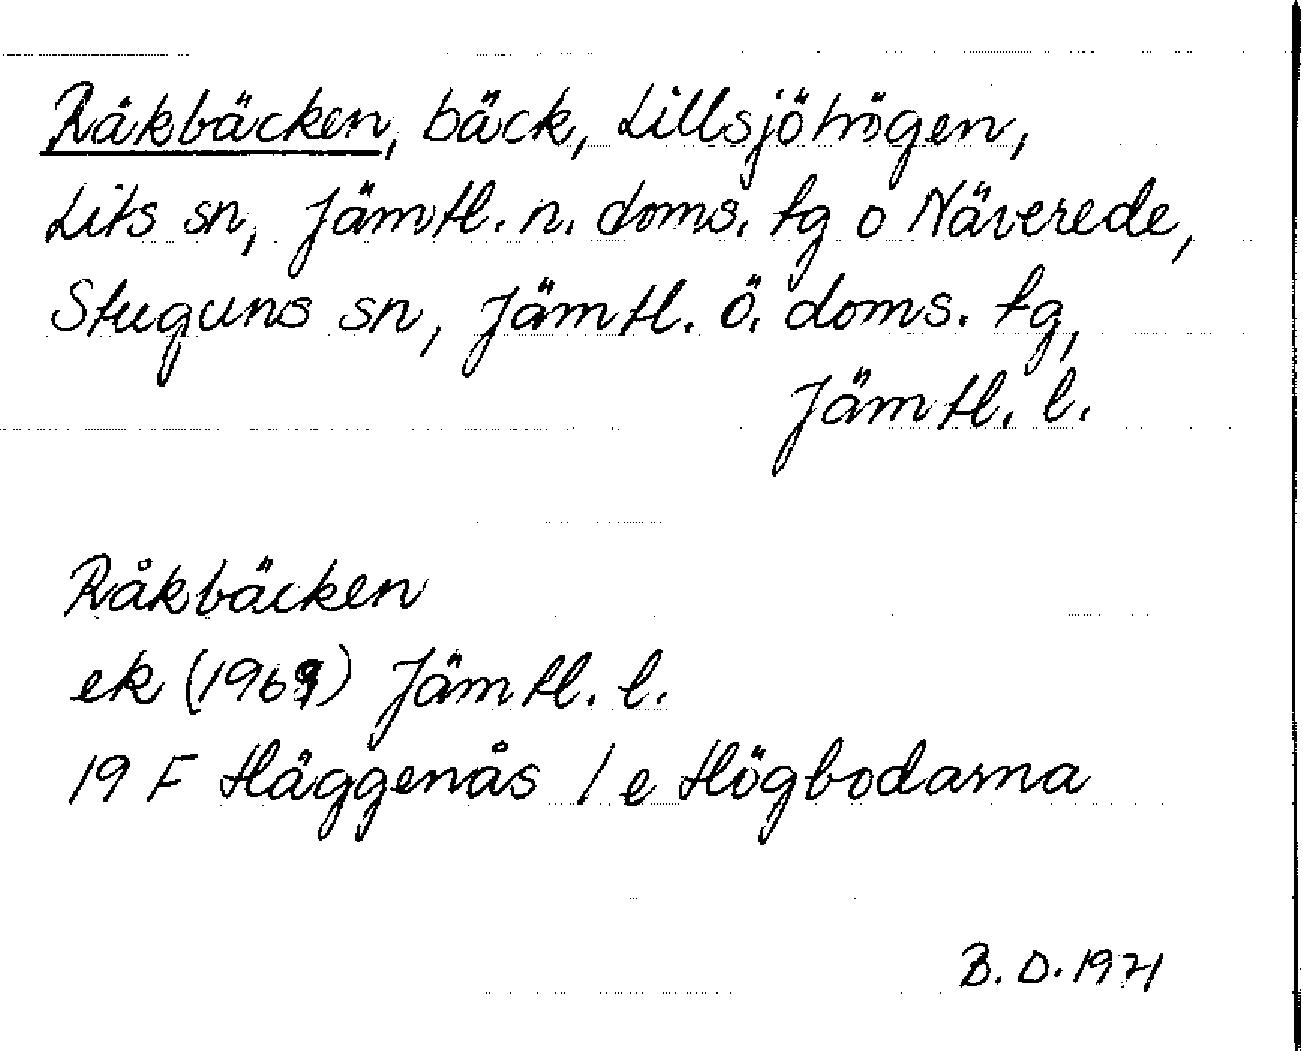 Råkbäcken, bäck, Lillsjöhögen,
Lits sn, Jämtl. n. doms. tg o Näverede,
Stuguns sn, Jämtl. ö. doms. tg,
Jämtl. l.
Råkbäcken
ek (1969) Jämtl. l.
19 F Häggenås / e Högbodarna
B. D. 1971